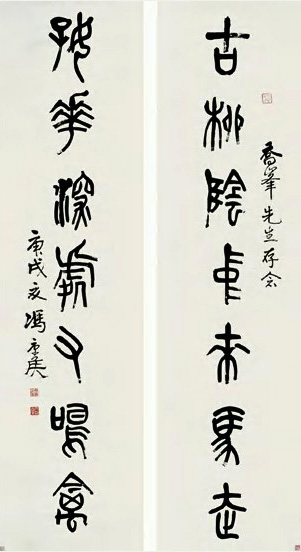 古柳陰中來馬走
喬峯先生存念
好華深處又鳴禽
庚戌夏馮康侯